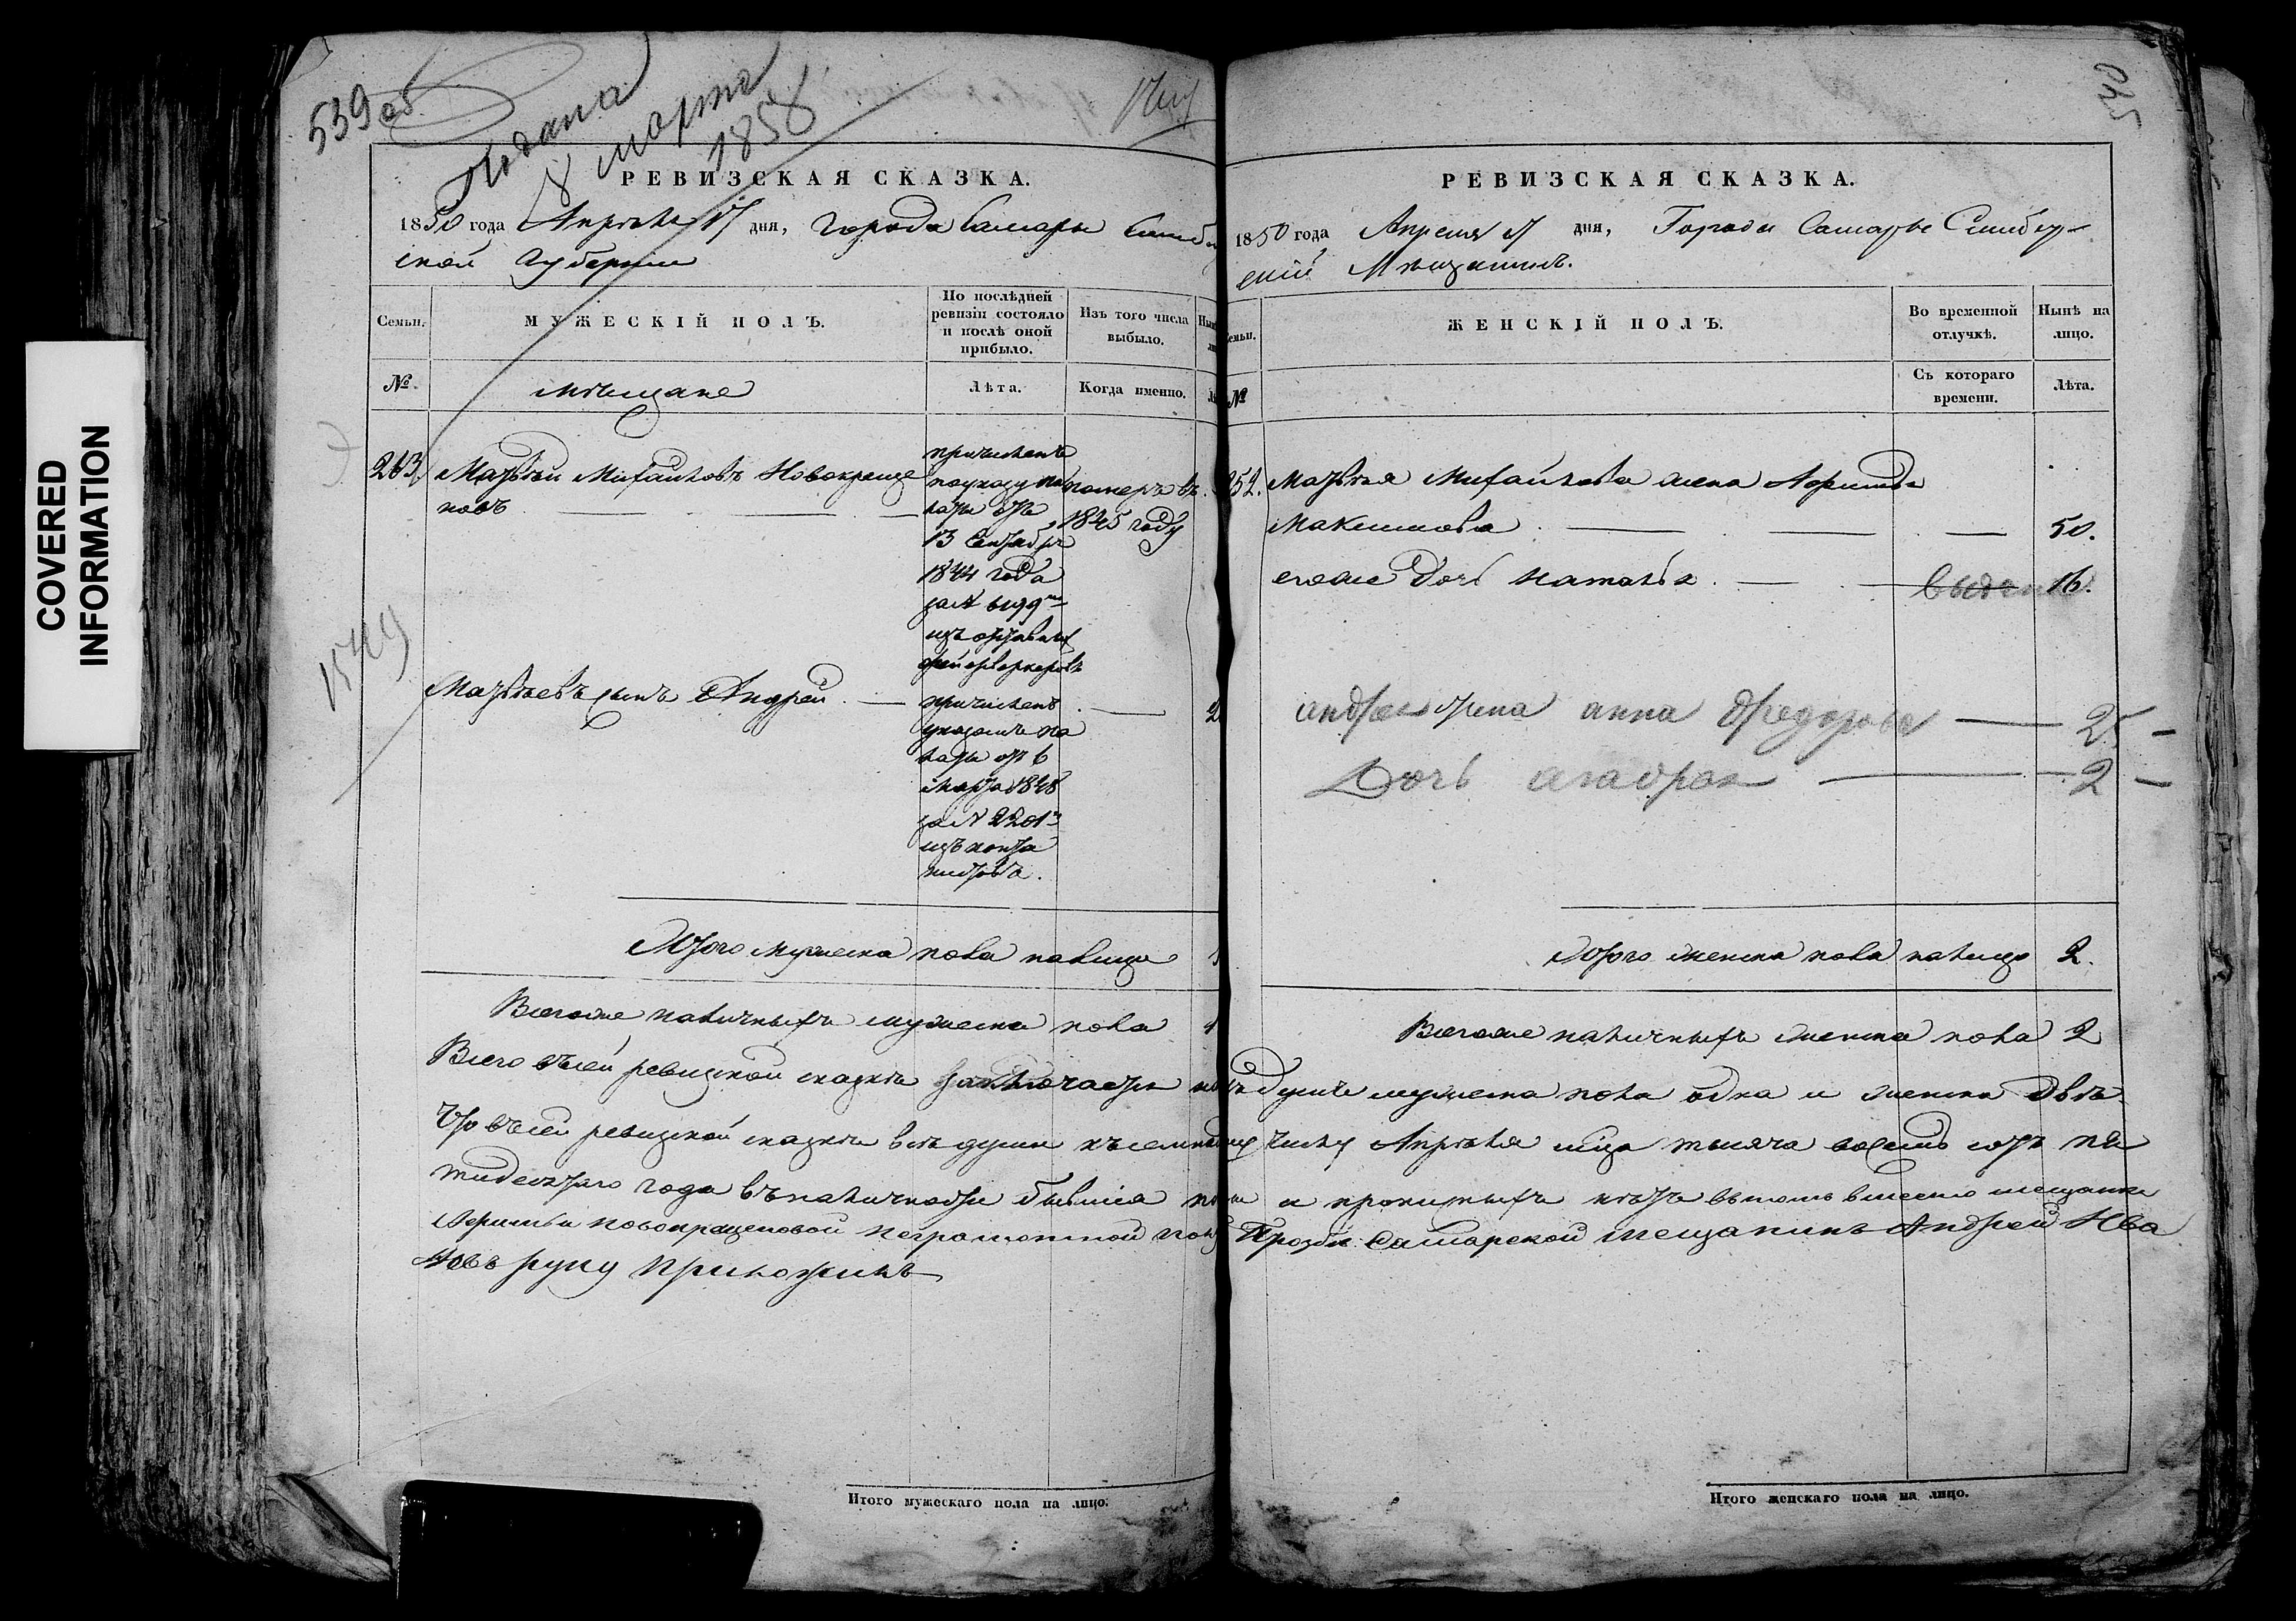 COVERED
INFORMATION
539 об
Подана
8 марта
1858
РЕВИЗСКАЯ СКАЗКА.
1850 года Апреля 17 дня, города Самары Симбир
ской Губернии
Семьи.
МУЖЕСКІЙ ПОЛЪ.
По послѣдней
ревизіи состояло
и послѣ оной
прибыло.
Изъ того числа
выбыло.
№.
мѣщане
Лѣта.
Когда именно.
263.
Матвѣй Михайловъ Новокреще
новъ
причисленъ
по указу па
латы отъ
13 Сентабря
1844 года
за №
изъ отставныхъ
фейерверкеровъ
померъ въ
1845 году
Матвѣевъ сынъ Андрей
причисленъ
указомъ па
латы отъ 6
Марта 1848
за № 2201
изъ канто
нистовъ.
2
1549
Итого мужеска пола налицо 1
Всегоже наличныхъ мужеска пола 1
РЕВИЗСКАЯ СКАЗКА.
1850 года Апреля 17 дня, Города Самары Симбир-
ской Мѣщанинъ.
Семьи.
ЖЕНСКІЙ ПОЛЪ.
Во временной
отлучкѣ.
Нынѣ на
лицо.
№
Съ котораго
времени.
Лѣта.
540
252.
Матвѣя Михайлова жена Афимья
Максимова 50.
егоже дочь Наталья 16.
андрея жена анна Федорова 25
Дочь 2
Итого женска пола налицо 2.
Всегоже наличныхъ женска пола 2
Всего въсей ревизской сказкѣ заключается душъ мужеска пола одна и женска двѣ
Что въсей ревизской сказкѣ всѣ души къ числу Апрѣля мца тысяча восемь сотъ пя
тидесятаго года въналичности бывшія и прописныхъ нѣтъ вътомъ вместо мещанки
Афимьи Новокрещеновой неграмотной прозбѣ Самарской мещанинъ Андрей Ива
новъ руку приложилъ
Итого мужескаго пола на лицо.
Итого женскаго пола на лицо.